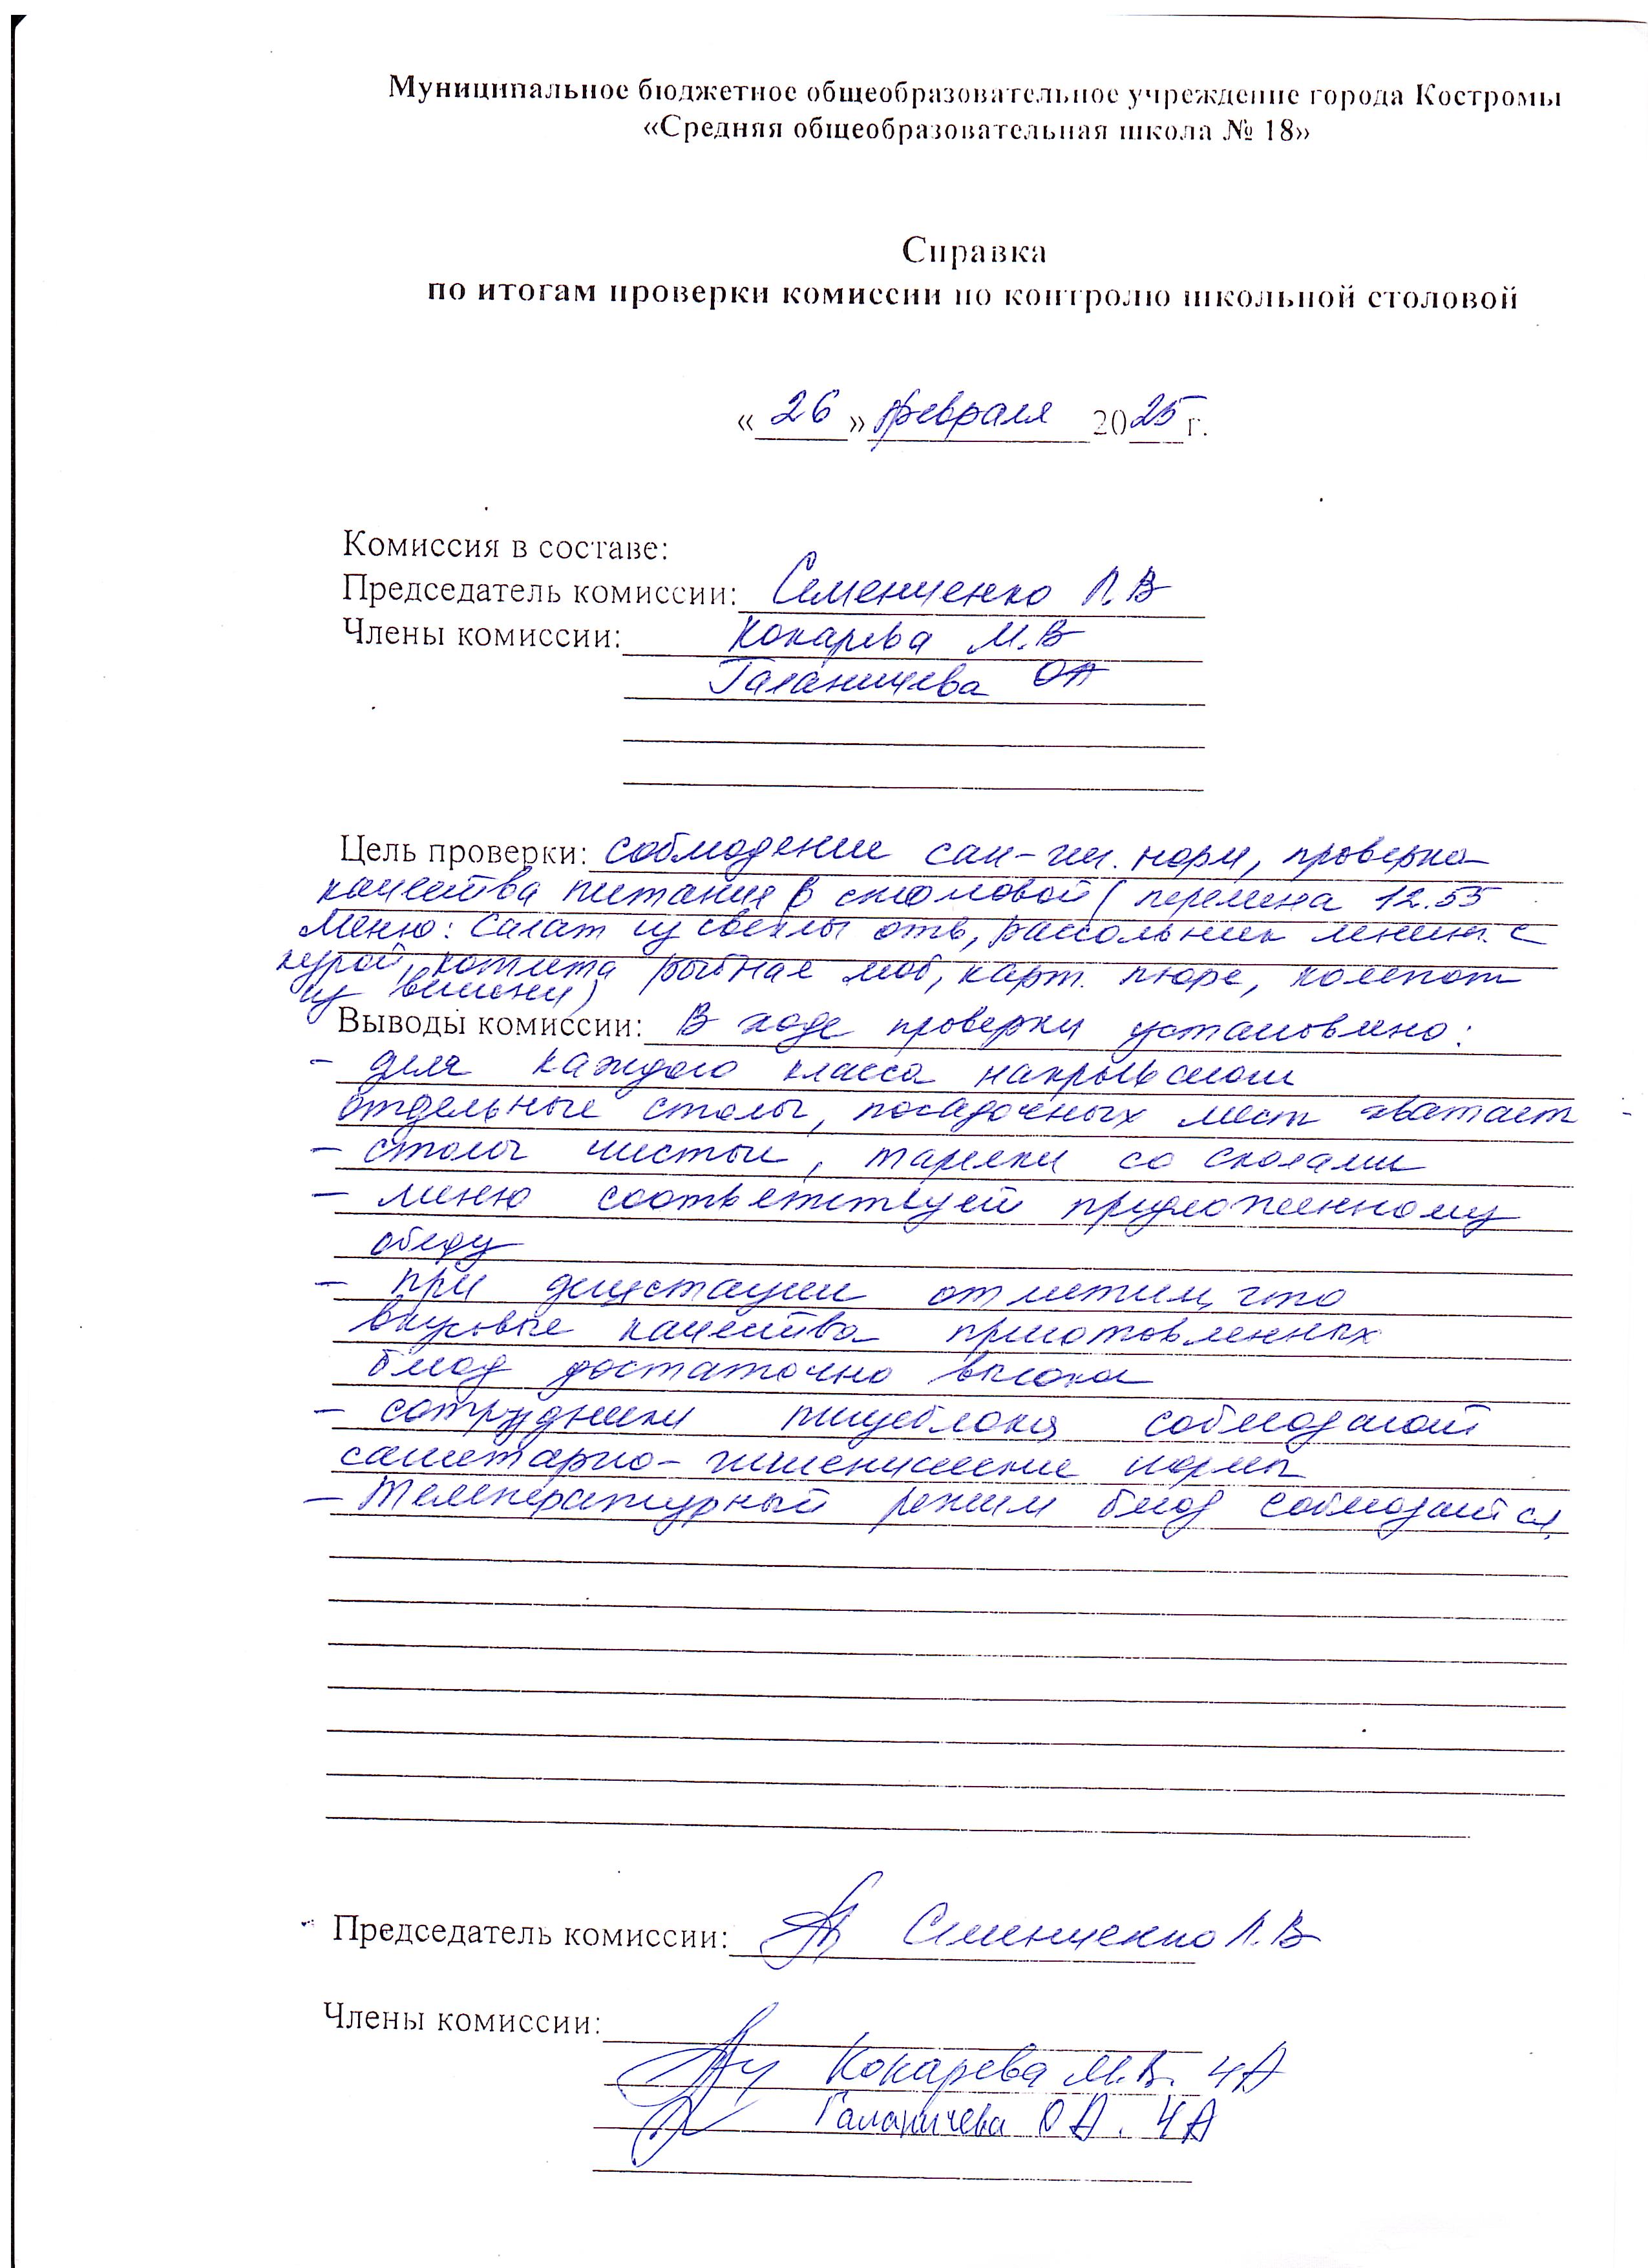 Муниципальное бюджетное общеобразовательное учреждение города Костромы
«Средняя общеобразовательная школа № 18»
Справка
по итогам проверки комиссии по контролю школьной столовой
« 26 » февраля 2025 г.
Комиссия в составе:
Председатель комиссии: Семенченко Л.В
Члены комиссии: Кокарева М.В
Галаничева ОА
Цель проверки: соблюдение сан-гиг. норм, проверка
качества питания в столовой ( перемена 12.55
Меню: Салат из свеклы отв, рассольник ленинг. с
курой, котлета рыбная люб, карт. пюре, компот
из вишни)
Выводы комиссии: В ходе проверки установлено:
- для каждого класса накрывают
отдельные столы, посадочных мест хватает
- столы чистые, тарелки со сколами
- меню соответствует предложенному
обеду
- при дегустации отметим, что
вкусовые качества приготовленных
блюд достаточно высоки
- сотрудники пищеблока соблюдают
санитарно-гигиенические нормы
- Температурный режим блюд соблюдается.
Председатель комиссии: Семенченко Л.В
Члены комиссии:
Кокарева М.В. 4А
Галаничева О А. 4А